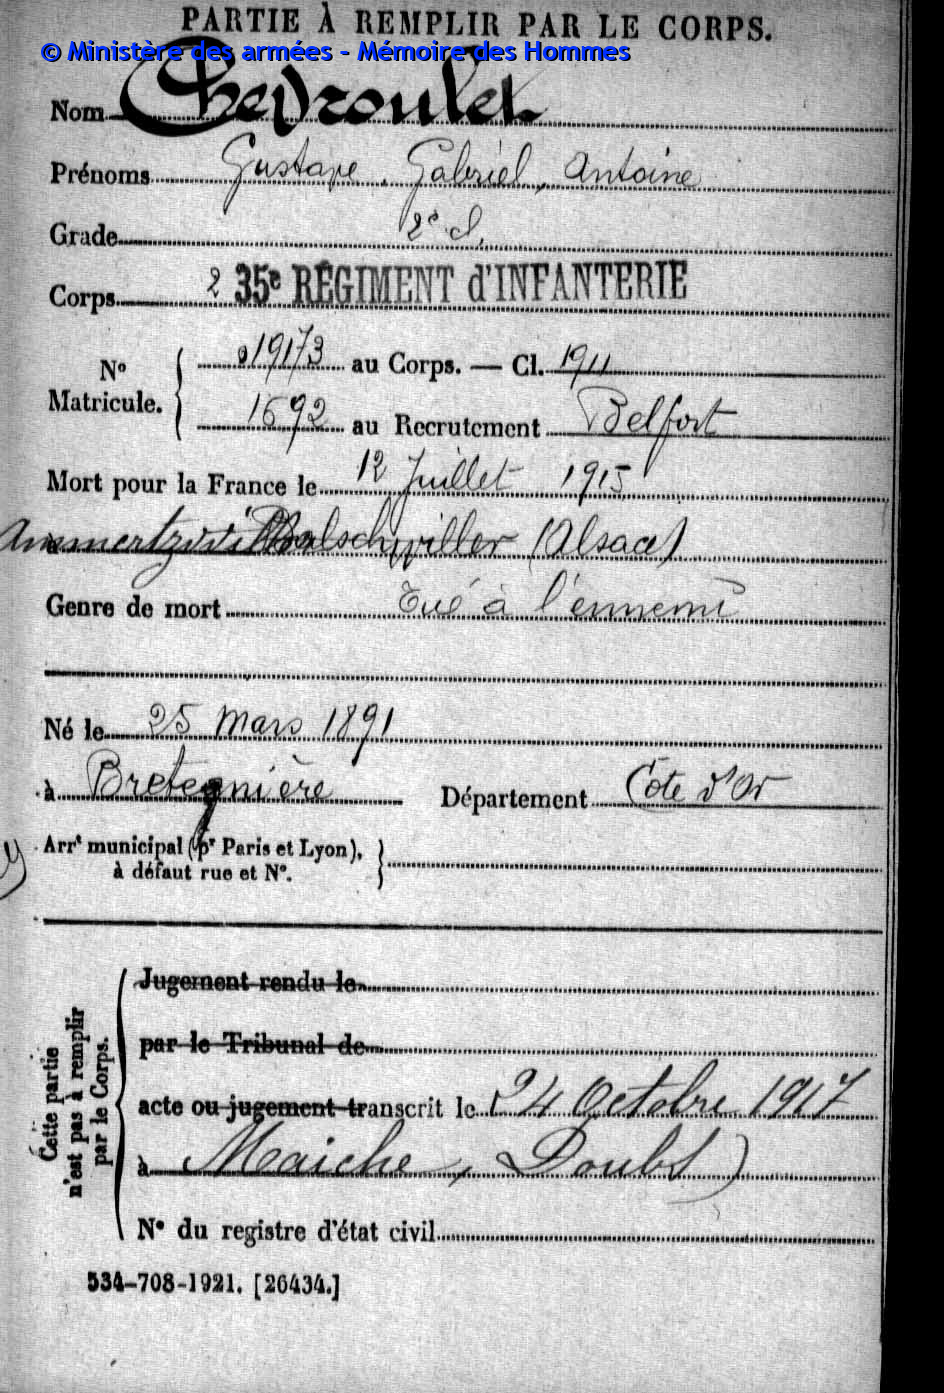 PARTIE À REMPLIR PAR LE CORPS.
© Ministère des armées - Mémoire des Hommes
Nom Chevroulet
Prénoms Gustave, Gabriel, Antoine
Grade 2e cl.
Corps 235e RÉGIMENT d'INFANTERIE
No Matricule. { 019173 au Corps. — Cl. 1911
1692 au Recrutement Belfort
Mort pour la France le 12 Juillet 1915
à Ammertzwiller Balschwiller (Alsace)
Genre de mort Tué à l'ennemi
Né le 25 Mars 1891
à Bretegnière Département Côte d'Or
Arrt municipal (pr Paris et Lyon),
à défaut rue et No. }
Cette partie
n'est pas à remplir
par le Corps.
Jugement rendu le
par le Tribunal de
acte ou jugement transcrit le 24 Octobre 1917
à Maiche, Doubs)
No du registre d'état civil
534-708-1921. [26434.]